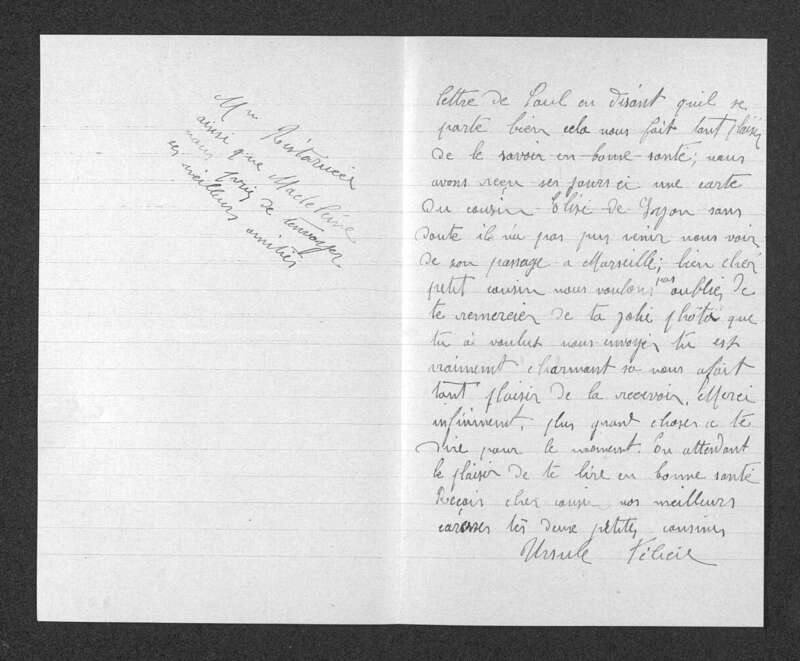 Mme Ristorucci
ainsi que Madeleine
nous prie de t'envoyer
ses meilleurs amitiés
lettre de Paul en disant qu'il se
porte bien cela nous fait tant plaisir
de le savoir en bonne santé; nous
avons reçu ses jours ci une carte
du cousin Elisé de Lyon sans
doute il n'a pas pus venir nous voir
de son passage a Marseille; bien cher
petit cousin nous voulons pas oublier de
te remercier de ta jolie photo que
tu à voulus nous envoyer tu est
vraiment charmant sa nous a fait
tant plaisir de la recevoir. Merci
infiniment, plus grand choses a te
dire pour le moment. En attendant
le plaisir de te lire en bonne santé
Reçois cher cousin nos meilleurs
caresses tes deux petites cousines
Ursule Félicie